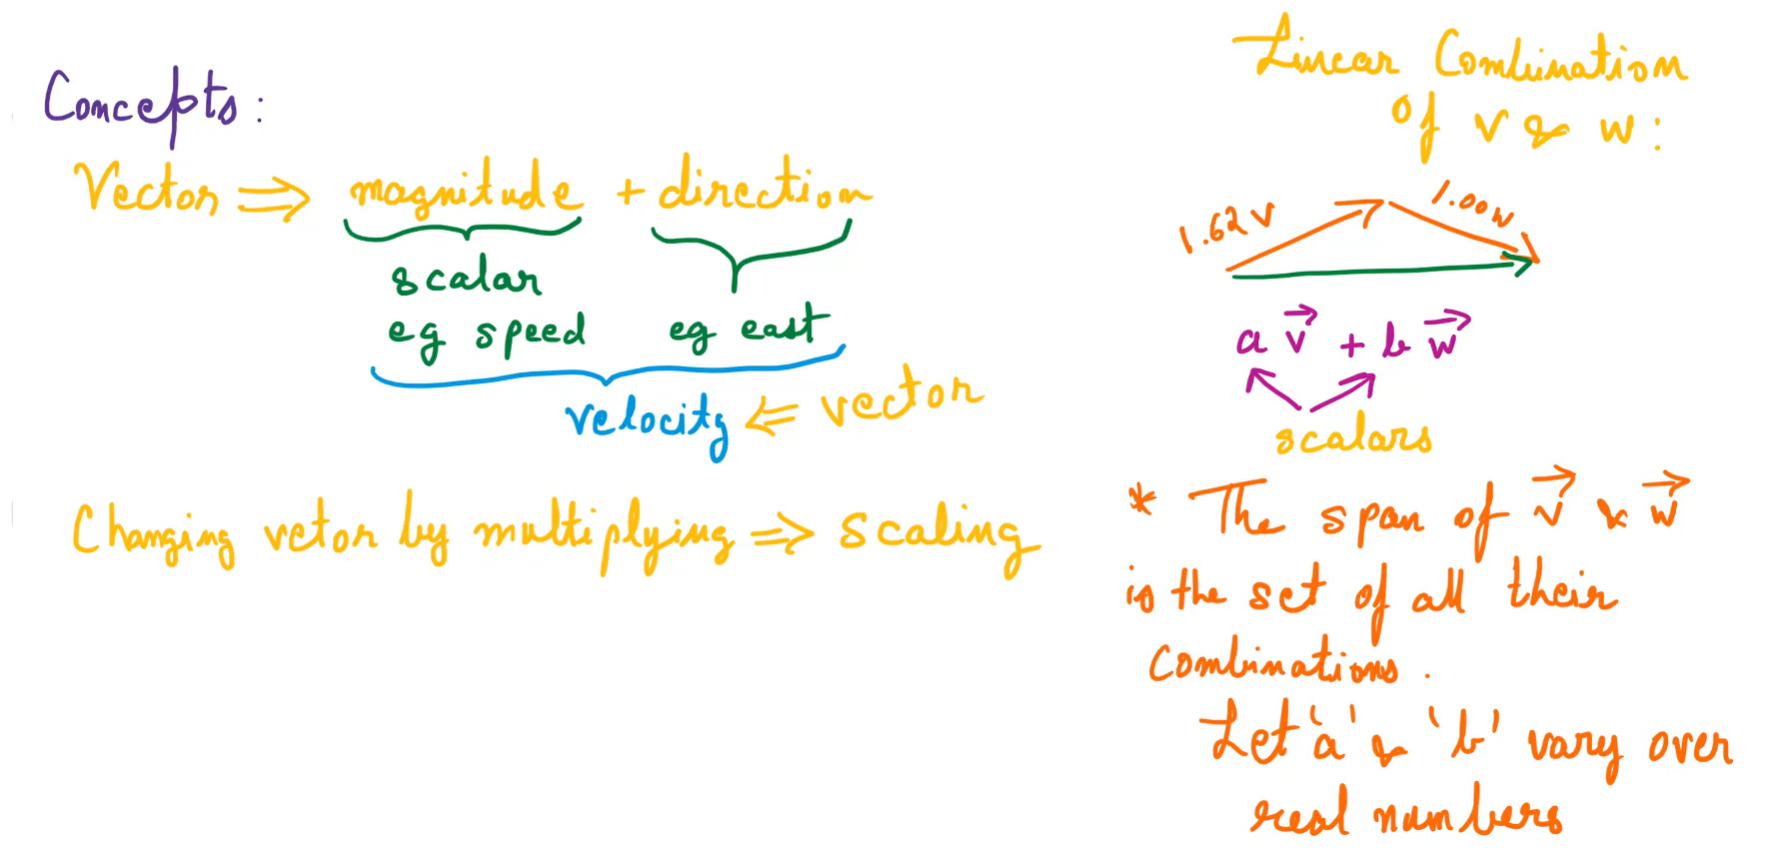 Concepts:
Vector ⇒ magnitude + direction
scalar
eg speed eg east
velocity ⇐ vector
Changing vetor by multiplying ⇒ scaling
Linear Combination
of v & w:
1.62v 1.00w
a v⃗ + b w⃗
scalars
* The span of v⃗ & w⃗
is the set of all their
combinations.
Let 'a' & 'b' vary over
real numbers